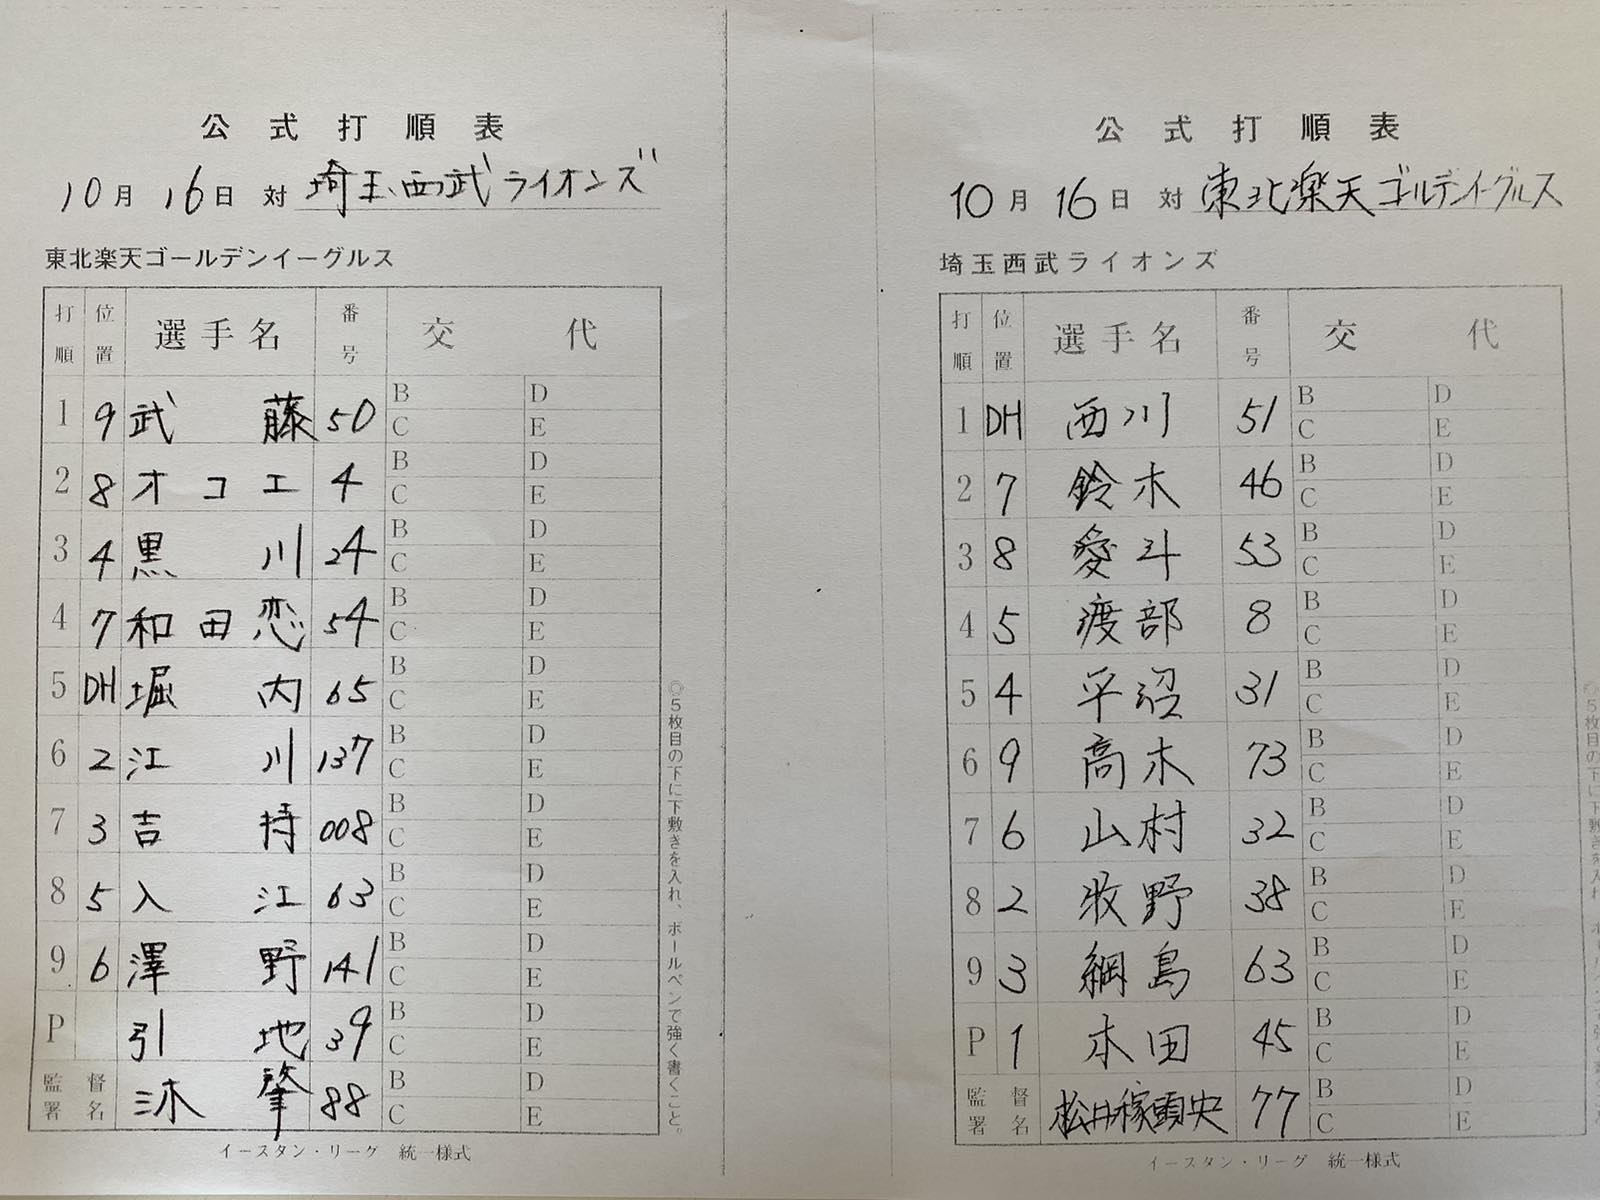 公式打順表
10月16日 対 埼玉西武ライオンズ
東北楽天ゴールデンイーグルス
打順 位置 選手名 番号 交代
1 9 武藤 50 B C D E
2 8 オコエ 4 B C D E
3 4 黒川 24 B C D E
4 7 和田恋 54 B C D E
5 DH 堀内 65 B C D E
6 2 江川 137 B C D E
7 3 吉持 008 B C D E
8 5 入江 63 B C D E
9 6 澤野 141 B C D E
P 引地 39 B C D E
監督署名 三木肇 88 B C D E
イースタン・リーグ 統一様式
◎5枚目の下に下敷きを入れ、ボールペンで強く書くこと。
公式打順表
10月16日 対 東北楽天ゴールデンイーグルス
埼玉西武ライオンズ
打順 位置 選手名 番号 交代
1 DH 西川 51 B C D E
2 7 鈴木 46 B C D E
3 8 愛斗 53 B C D E
4 5 渡部 8 B C D E
5 4 平沼 31 B C D E
6 9 高木 73 B C D E
7 6 山村 32 B C D E
8 2 牧野 38 B C D E
9 3 綱島 63 B C D E
P 1 本田 45 B C D E
監督署名 松井稼頭央 77 B C D E
イースタン・リーグ 統一様式
◎5枚目の下に下敷きを入れ